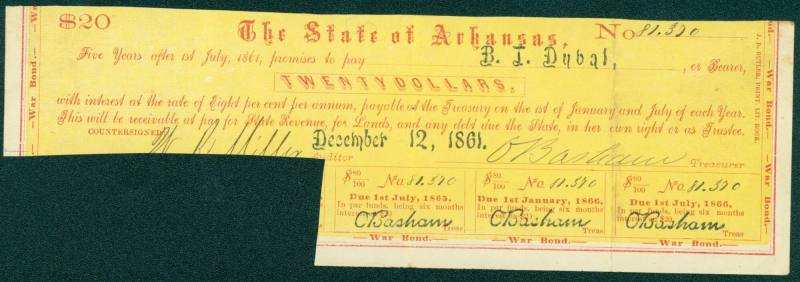 $20 The State of Arkansas, No 81.370
Five Years after 1st July, 1861, promises to pay B. T. Dubal, , or Bearer,
TWENTY DOLLARS,
with interest at the rate of Eight per cent per annum, payable at the Treasury on the 1st of January and July of each Year.
This will be receivable at par for State Revenue, for Lands, and any debt due the State, in her own right or as Trustee.
COUNTERSIGNED
Miller December 12, 1861. O Basham
Auditor Treasurer
$ 80/100 No. 81.370
Due 1st July, 1865.
In par funds, being six months
interest
O Basham
Treas
War Bond.
$ 80/100 No. 81.370
Due 1st January, 1866,
In par funds, being six months
interest
O Basham
Treas
War Bond.
$ 80/100 No. 81.370
Due 1st July, 1866,
In par funds, being six months
interest on $20.
O Basham
Treas
War Bond.
War Bond.
War Bond.
J. D. BUTLER, PRINT, LIT. ROCK.